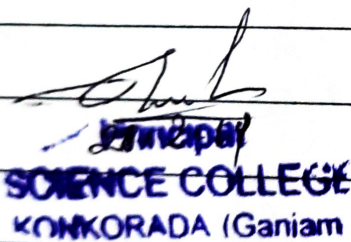 Principal
SCIENCE COLLEGE
KONKORADA (Ganjam